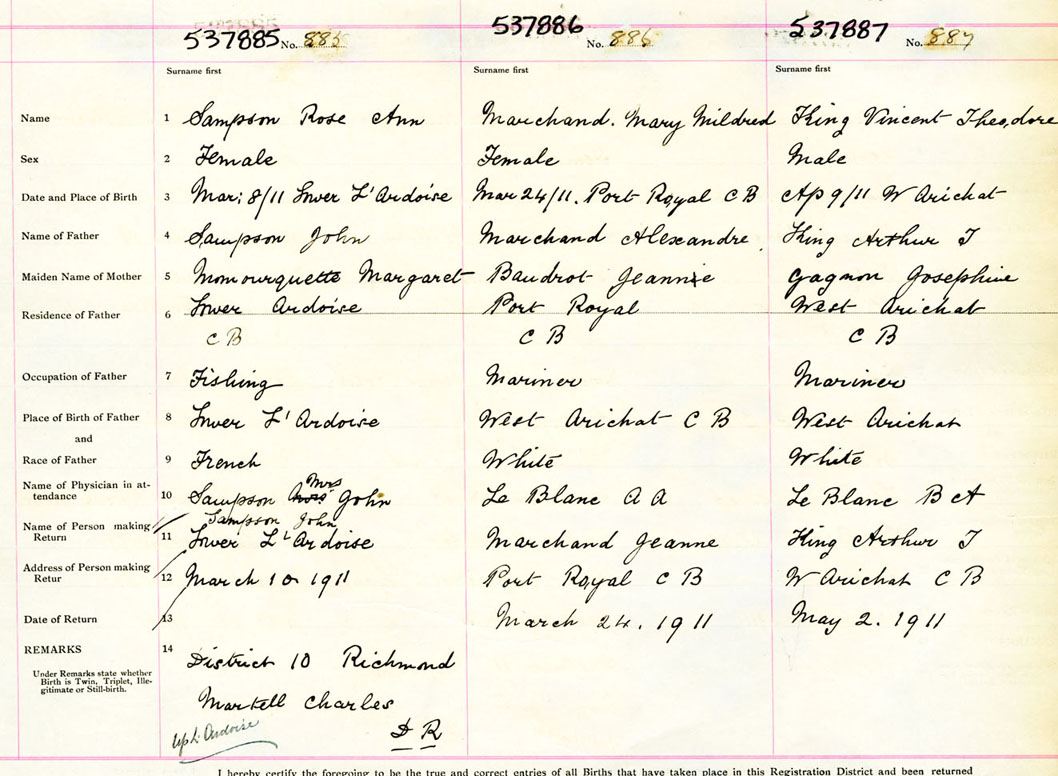 537885 No. 885 537886 No. 886 537887 No. 887
Surname first Surname first Surname first
Name 1 Sampson Rose Ann Marchand. Mary Mildred King Vincent Theodore
Sex 2 Female Female Male
Date and Place of Birth 3 Mar: 8/11 Lower L'Ardoise Mar 24/11. Port Royal C B Ap 9/11 W Arichat
Name of Father 4 Sampson John Marchand Alexandre King Arthur T
Maiden Name of Mother 5 Momourquette Margaret Baudrot Jeannie Gagnon Josephine
Residence of Father 6 Lower Ardoise Port Royal West Arichat
C B C B C B
Occupation of Father 7 Fishing Mariner Mariner
Place of Birth of Father 8 Lower L'Ardoise West Arichat C B West Arichat
and
Race of Father 9 French White White
Name of Physician in at-
tendance 10 Sampson Mrs John Le Blanc A A Le Blanc B A
Sampson John
Name of Person making
Return 11 Lower L'Ardoise Marchand Jeanne King Arthur T
Address of Person making
Retur 12 March 10 1911 Port Royal C B W Arichat C B
Date of Return 13 March 24. 1911 May 2. 1911
REMARKS 14 District 10 Richmond
Under Remarks state whether
Birth is Twin, Triplet, Ille-
gitimate or Still-birth.
Martell Charles
D R
L. Ardoise
I hereby certify the foregoing to be the true and correct entries of all Births that have taken place in this Registration District and been returned